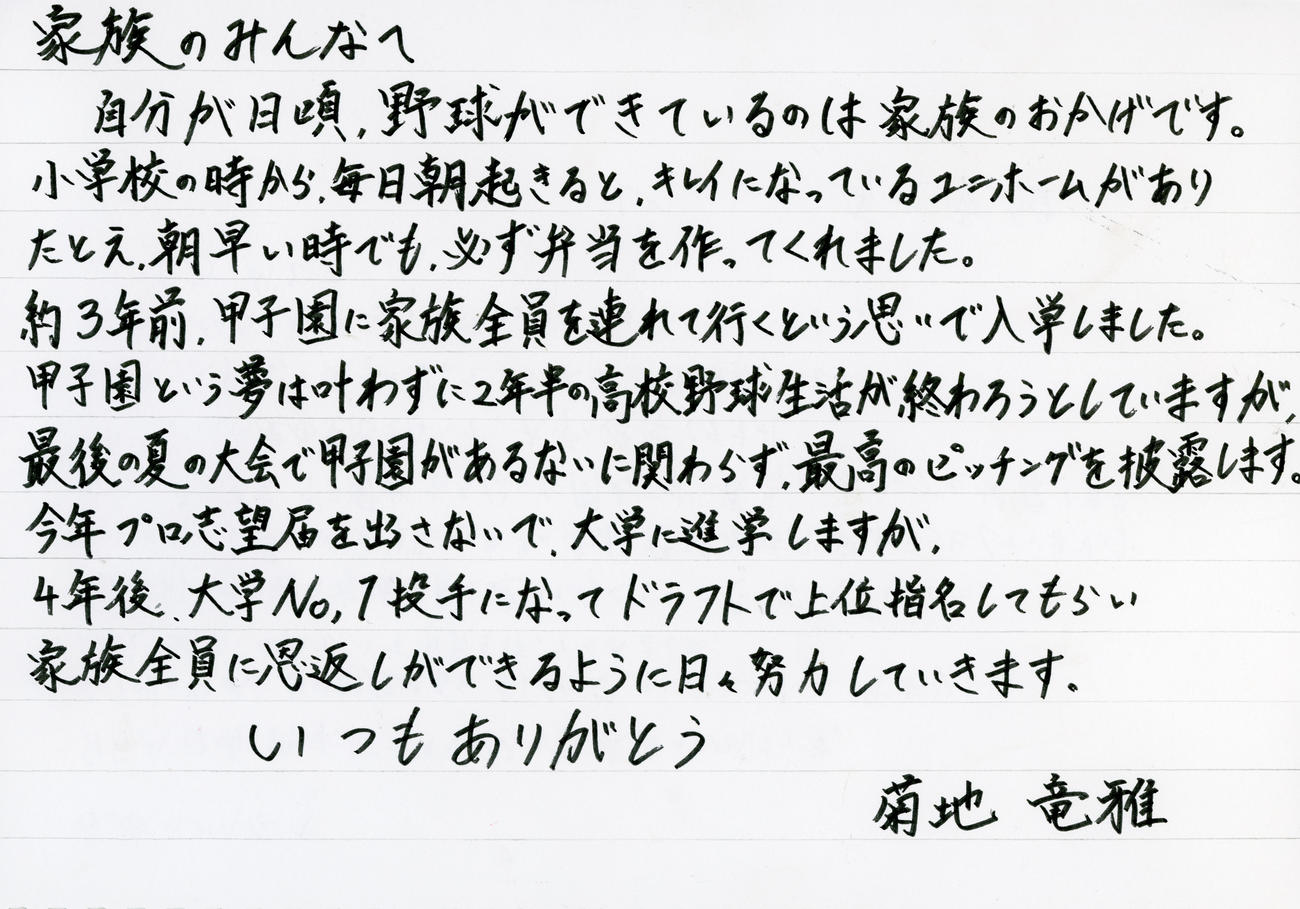 家族のみんなへ
自分が日頃、野球ができているのは家族のおかげです。
小学校の時から、毎日朝起きると、キレイになっているユニホームがあり
たとえ、朝早い時でも、必ず弁当を作ってくれました。
約3年前、甲子園に家族全員を連れて行くという思いで入学しました。
甲子園という夢は叶わずに2年半の高校野球生活が終わろうとしていますが、
最後の夏の大会で甲子園があるないに関わらず、最高のピッチングを披露します。
今年プロ志望届を出さないで、大学に進学しますが、
4年後、大学No,1投手になってドラフトで上位指名してもらい
家族全員に恩返しができるように日々努力していきます。
いつもありがとう
菊地 竜雅